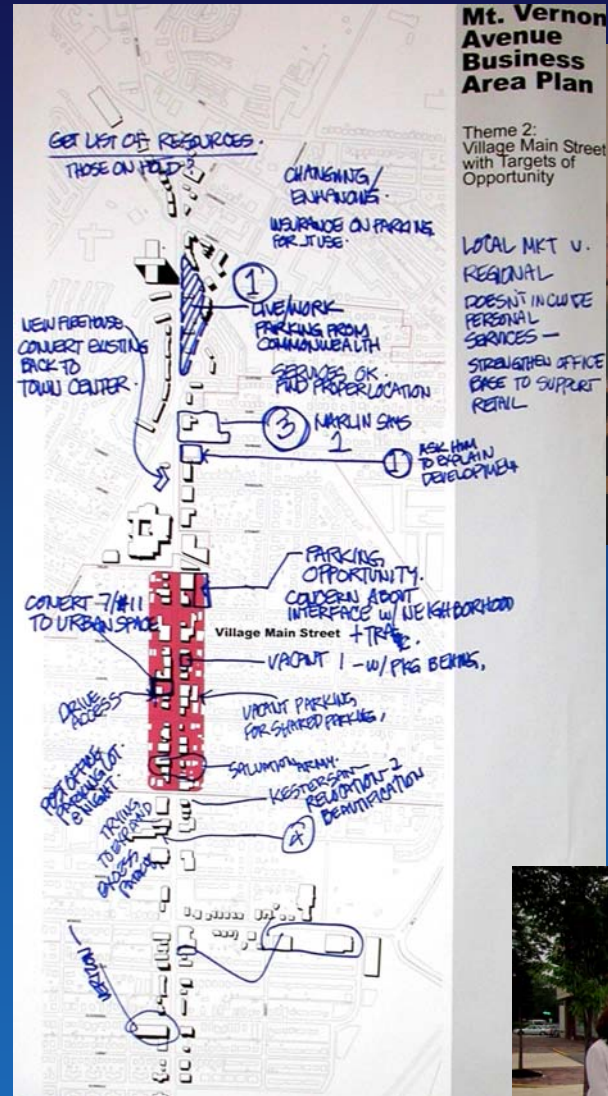 Mt. Vernon
Avenue
Business
Area Plan
Theme 2:
Village Main Street
with Targets of
Opportunity
GET LIST OF RESOURCES.
THOSE ON HOLD?
CHANGING/
ENHANCING.
INSURANCE ON PARKING
FOR JT USE.
LOCAL MKT V.
REGIONAL
DOESN'T INCLUDE
PERSONAL
SERVICES —
STRENGTHEN OFFICE
BASE TO SUPPORT
RETAIL
1
LIVE/WORK
PARKING FROM
COMMONWEALTH
SERVICES OK.
AND PROPER LOCATION
NEW FIREHOUSE
CONVERT EXISTING
BACK TO
TOWN CENTER.
3
MARLIN SAYS
1
1
ASK HIM
TO EXPLAIN
DEVELOPMENT
PARKING
OPPORTUNITY.
CONCERN ABOUT
INTERFACE W/ NEIGHBORHOOD
CONERT 7/#11
TO URBAN SPACE
Village Main Street
VACANT 1 - W/ PKG BEHING,
DRIVE
ACCESS
VACANT PARKING
FOR SHARED PARKING,
POST OFFICE
PARKING LOT
@ NIGHT.
SALVATION ARMY.
RELOCATION - 2
BEAUTIFICATION
TRYING
TO EXPAND
EXCESS
4
VERIZON